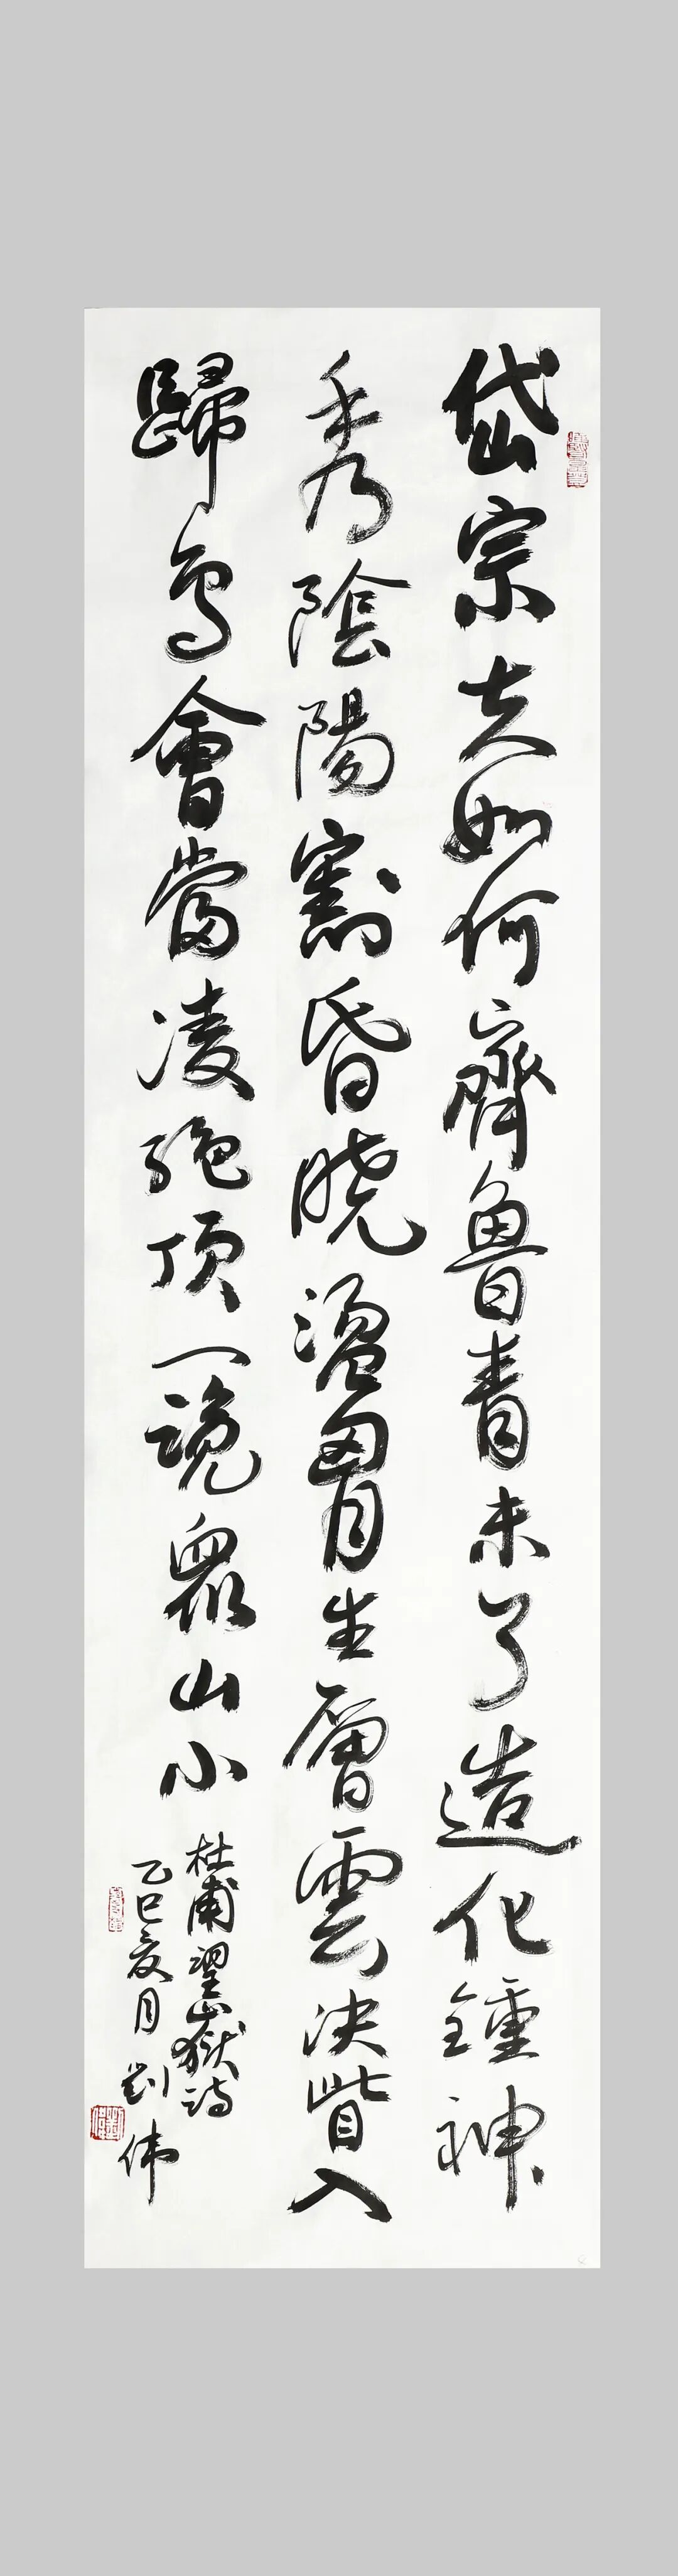 岱宗夫如何齊魯青未了造化鍾神
秀陰陽割昏曉盪胷生層雲決眥入
歸鳥會當凌絕頂一覽眾山小
杜甫望嶽詩
乙巳夏月刘伟